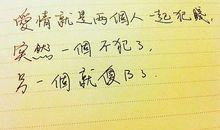 愛情就是兩個人一起犯賤，
突然一個不犯了，
另一個就傻B了。